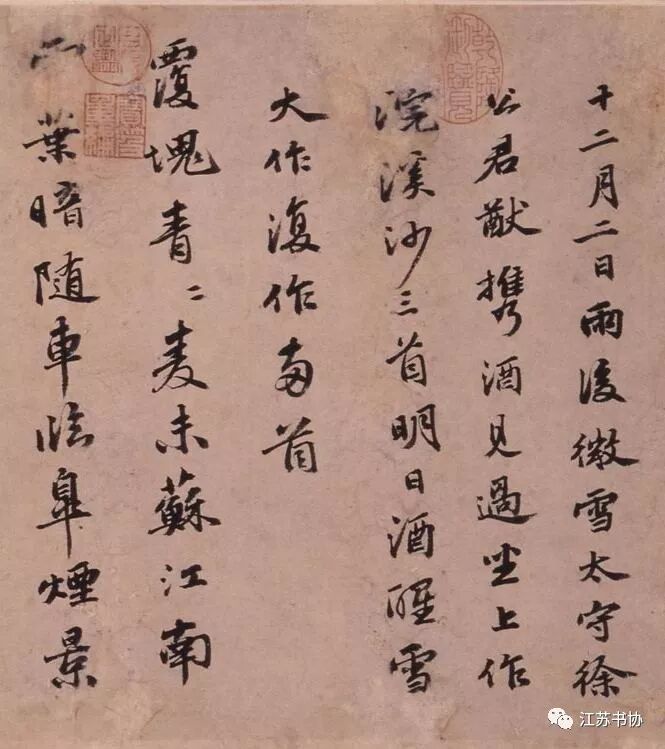 十二月二日雨後微雪太守徐
公君猷攜酒見過坐上作
浣溪沙三首明日酒醒雪
大作復作兩首
覆塊青〻麦未蘇江南
雲葉暗随車臨皐煙景
江苏书协